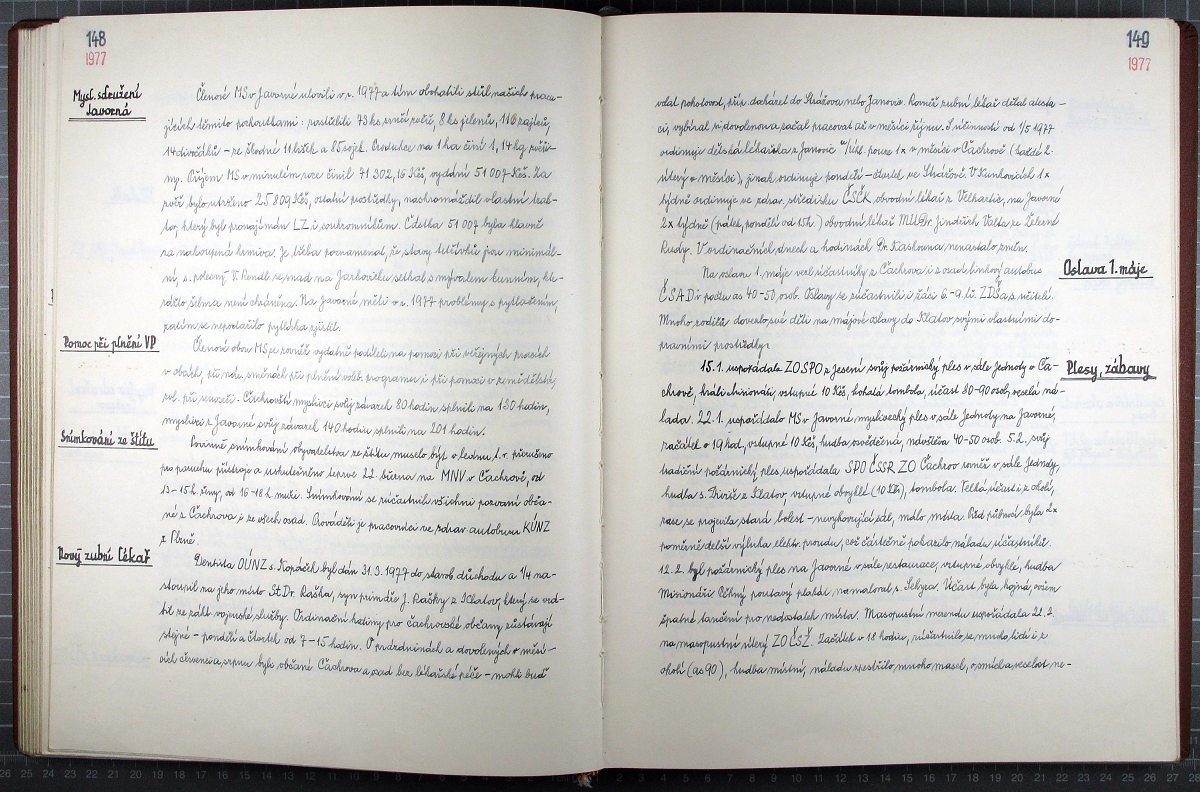 148
1977
Mysl. sdružení
Javorná
Členové MS v Javorné ulovili v r. 1977 a tím obohatili stůl našich pracu-
jících těmito pochoutkami: zastřelili 73 ks srnčí zvěře, 8 ks jelenů, 116 zajíců,
14 divočáků – ze škodné 11 lišek a 85 sojek. Produkce na 1 ha činí 1,14 kg zvěři-
ny. Příjem MS v minulém roce činil 71 302,16 Kčs, vydání 51 007 Kčs. Za
zvěř bylo utrženo 25 809 Kčs, ostatní prostředky nashromáždil vlastní trak-
tor, který byl pronajímán LZ i soukromníkům. Částka 51 007 byla hlavně
za nakoupená krmiva. Je třeba poznamenat, že stavy tetřívků jsou minimál-
ní, s. polesný V. Rendl se snad na Jarkovsku setkal s výskytem kunám, kte-
rážto šelma není chráněna. Na Javorné měli v r. 1977 problémy s pytlačením,
zatím se nepodařilo pytláka zjistit.
Pomoc při plnění VP
Členové obou MS se rovněž vydatně podíleli na pomoci při veřejných pracích
v obcích, při směnách při plnění voleb. programu i při pomoci v zemědělství,
zvl. při senoseči. Čachrovští myslivci svůj závazek 80 hodin splnili na 130 hodin,
myslivci z Javorné svůj závazek 140 hodin splnili na 201 hodin.
Snímkování ze štítu
Povinné snímkování obyvatelstva ze štítu muselo být v lednu t. r. přerušeno
pro poruchu přístroje a uskutečněno teprve 22. března na MNV v Čachrově, od
13–15 h. ženy, od 16–18 h. muži. Snímkování se zúčastnili všichni pozvaní obča-
né z Čachrova i ze všech osad. Prováděli je pracovníci ve zdrav. autobusu KÚNZ
z Plzně.
Nový zubní lékař
Dentista OÚNZ s. Kopáček byl dán 31.3.1977 do starob. důchodu a 1/4 na-
stoupil na jeho místo St Dr. Raška, syn primáře J. Rašky z Klatov, který se vrá-
til ze zákl. vojenské služby. Ordinační hodiny pro čachrovské občany zůstávají
stejné – pondělí a čtvrtek od 7–15 hodin. O prázdninách a dovolených v měsí-
cích červenci a srpnu byli občané Čachrova a osad bez lékařské péče – mohli buď
149
1977
volat pohotovost, příp. docházet do Strážova nebo Janovic. Rovněž zubní lékař dělal atesta-
ci, vybíral si dovolenou a začal pracovat až v měsíci říjnu. S účinností od 1/5 1977
ordinuje dětská lékařka z Janovic pouze 1x v měsíci v Čachrově (každé 2.
úterý v měsíci), jinak ordinuje pondělí – čtvrtek ve Strážově. V Kunkovicích 1x
týdně ordinuje ve zdrav. středisku ČSČK obvodní lékař z Velhartic, na Javorné
2x týdně (pátek, pondělí od 15 h) obvodní lékař MUDr. Jindřich Valta ze Železné
Rudy. V ordinačních dnech a hodinách Dr. Kashouna nenastalo změn.
Oslava 1. máje
Na oslavu 1. máje vezl účastníky z Čachrova i z osad linkový autobus
ČSAD v počtu as 40–50 osob. Oslavy se zúčastnili i žáci 6.–9. tř. ZDŠ a s. učitelé.
Mnoho rodičů dovezlo své děti na májové oslavy do Klatov svými vlastními do-
pravními prostředky.
Plesy, zábavy
15.1. uspořádala ZO SPO z Jesení svůj požárnický ples v sále Jednoty v Ča-
chrově, hráli Misionáři, vstupné 10 Kčs, bohatá tombola, účast 80–90 osob, veselá ná-
lada. 22.1. uspořádalo MS v Javorné myslivecký ples v sále Jednoty na Javorné,
začátek v 19 hod., vstupné 10 Kčs, hudba, návštěva 40–50 osob. 5.2. svůj
tradiční požárnický ples uspořádala SPO ČSSR ZO Čachrov rovněž v sále Jednoty,
hudba s. Diviše z Klatov, vstupné obvyklé (10 Kčs), tombola. Velká účast i z okolí,
zase se projevila stará bolest – nevyhovující sál, málo místa. Před půlnocí byla 2x
poměrně delší výluka elektr. proudu, což částečně pokazilo náladu účastníků.
12.2. byl požárnický ples na Javorné v sále restaurace, vstupné obvyklé, hudba
Misionáři. Pěkný poutavý plakát namaloval s. Sehza. Účast byla hojná, ovšem
špatné tančení pro nedostatek místa. Masopustní merendu uspořádala 22.2.
na masopustní úterý ZO ČSŽ. Začátek v 18 hodin, zúčastnilo se mnoho lidí i z
okolí (as 90), hudba místní, náladu zpestřilo mnoho masek, o smích a veselost ne-